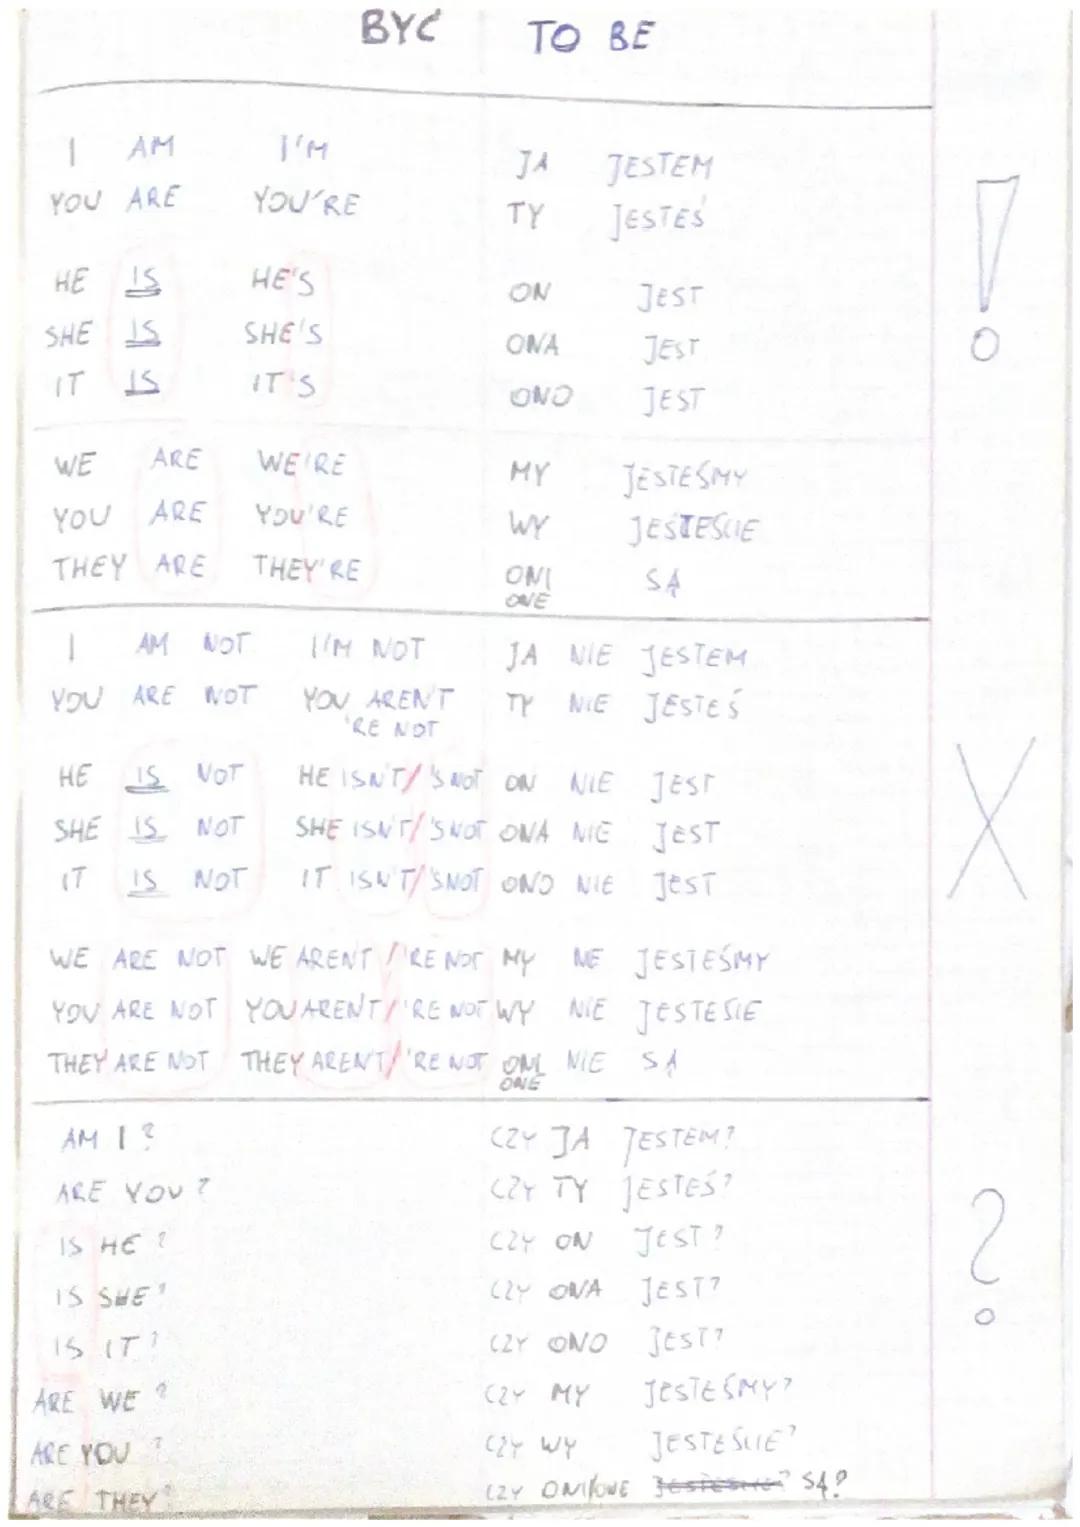 BYĆ TO BE
I AM I'M JA JESTEM
YOU ARE YOU'RE TY JESTEŚ
!
HE IS HE'S ON JEST
SHE IS SHE'S ONA JEST
IT IS IT'S ONO JEST
WE ARE WE'RE MY JESTEŚMY
YOU ARE YOU'RE WY JESTEŚCIE
THEY ARE THEY'RE ONI SĄ
ONE
I AM NOT I'M NOT JA NIE JESTEM
YOU ARE NOT YOU AREN'T TY NIE JESTEŚ
'RE NOT
HE IS NOT HE ISN'T/'S NOT ON NIE JEST
SHE IS NOT SHE ISN'T/'S NOT ONA NIE JEST
X
IT IS NOT IT ISN'T/'S NOT ONO NIE JEST
WE ARE NOT WE ARENT/'RE NOT MY NE JESTEŚMY
YOU ARE NOT YOU ARENT/'RE NOT WY NIE JESTESIE
THEY ARE NOT THEY AREN'T/'RE NOT ONI NIE SĄ
ONE
AM I? CZY JA JESTEM?
ARE YOU? CZY TY JESTEŚ?
IS HE? CZY ON JEST?
?
IS SHE? CZY ONA JEST?
IS IT? CZY ONO JEST?
ARE WE? CZY MY JESTEŚMY?
ARE YOU? CZY WY JESTEŚCIE?
ARE THEY? CZY ONI/ONE JESTEŚCIE? SĄ?